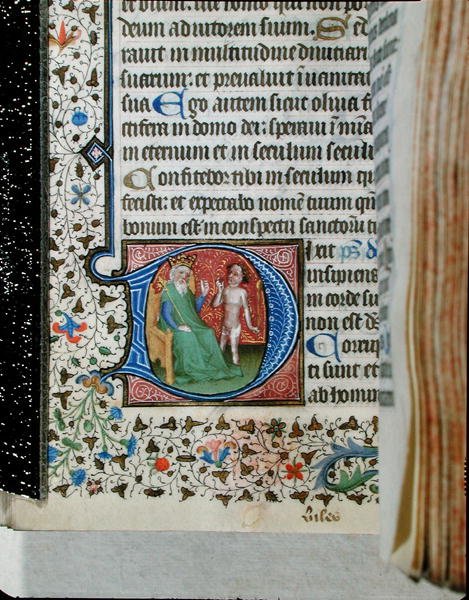 homo qui non po
deum adiutorem suum. Se
rauit in multitudine diuitiar
suarum: et preualuit i uanita
sua Ego autem sicut oliua f
ctifera in domo dei: speraui i mia
in eternum et in seculum seculi
Confitebor tibi in seculum qu
fecisti: et expectabo nomē tuum qm̄
bonum est in conspectu sanctorū t
Dixit ps d
insipiens
in corde su
non est ds̄
Corrup
ti sunt et
abhomi